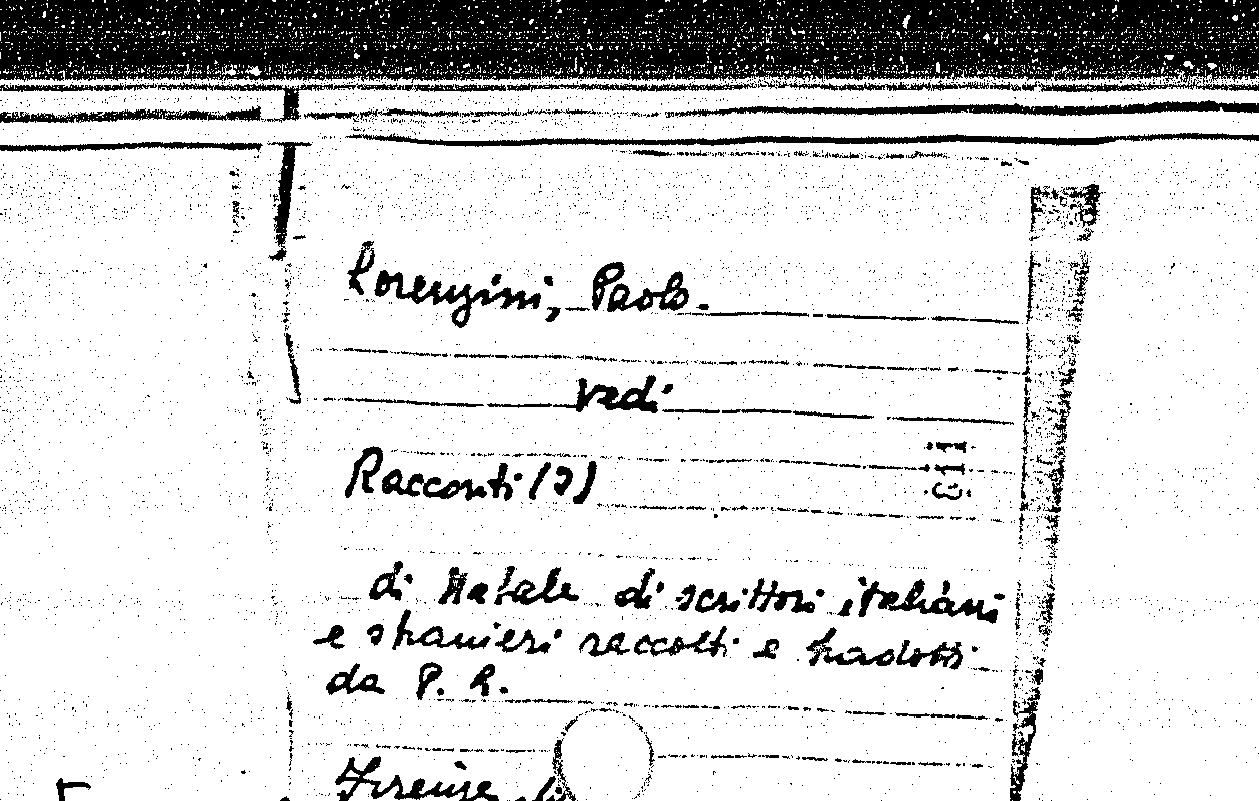 Lorenzini, Paolo.
vedi
Racconti (2)
di Natale di scrittori italiani
e stranieri raccolti e tradotti
da P. L.
Firenze